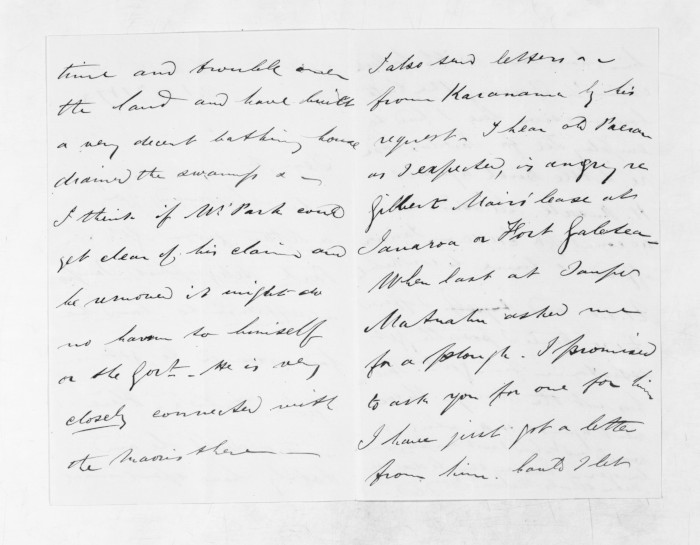 time and trouble over
the land and have built
a very decent bathing house
drained the swamps &
I think if Mr Park could
get clear of his claim and
be removed it might do
no harm to himself
or the Govt - He is very
closely connected with
the Maoris there —
I also send letters
from Karanama by his
request. I hear old
as I expected, is angry re
Gilbert Mair's lease at
or Fort Galatea -
When last at Taupo
asked me
for a plough. I promised
to ask you for one for him
I have just got a letter
from him. Could I let